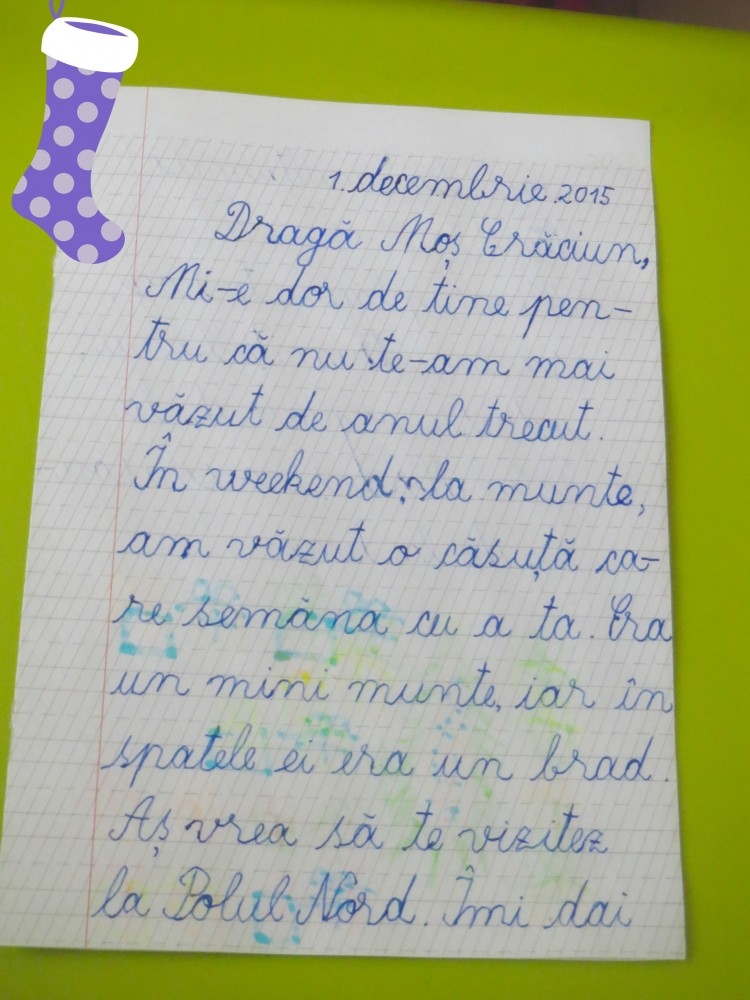 1. decembrie. 2015
Dragă Moș Crăciun,
Mi-e dor de tine pen-
tru că nu te-am mai
văzut de anul trecut.
În weekend, la munte,
am văzut o căsuță ca-
re semăna cu a ta. Era
un mini munte, iar în
spatele ei era un brad.
Aș vrea să te vizitez
la Polul Nord. Îmi dai